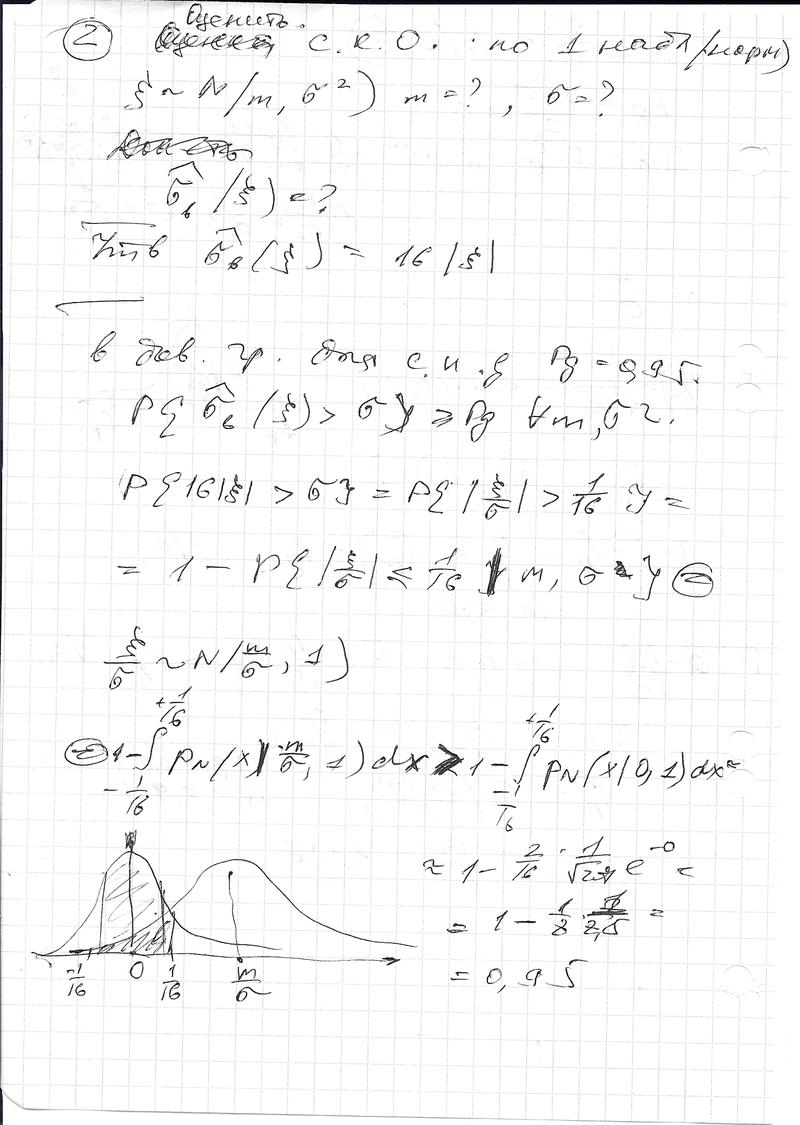 Оценить.
② С.К.О. по 1 набл (норм)
ξ ~ N(m, σ²) m = ?, σ = ?
σ̂в (ξ) = ?
Утв σ̂в (ξ) = 16 |ξ|
в дов. гр. для с.к.о Pg = 0,95.
P{ σ̂в (ξ) > σ} ≥ Pg ∀m, σ².
P{16|ξ| > σ} = P{ |ξ/σ| > 1/16 } =
= 1 - P{ |ξ/σ| ≤ 1/16 | m, σ } ⊜
ξ/σ ~ N(m/σ, 1)
⊜ 1 - ∫_{-1/16}^{+1/16} PN(x | m/σ, 1) dx > 1 - ∫_{-1/16}^{+1/16} PN(x | 0, 1) dx ≈
≈ 1 - 2/16 · 1/√2π e^{-0} =
= 1 - 1/8 · 1/2,5 =
= 0,95
-1/16 0 1/16 m/σ